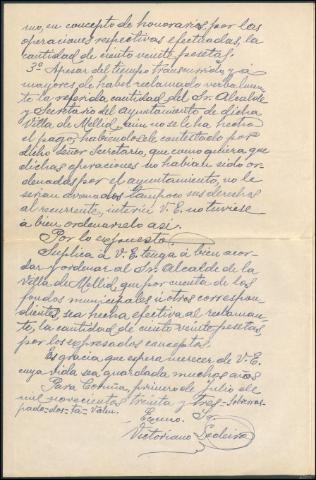 mo, en concepto de honorarios por las
operaciones respectivas efectuadas, la
cantidad de ciento veinte pesetas.
3º Apesar del tiempo transcurrido y a
mayores de haber reclamado verbalmen-
te la referida cantidad del Sr. Alcalde
y Secretario del ayuntamiento de dicha
Villa de Mellid, aun no se le ha hecho
el pago, habiendosele contestado por
dicho señor Secretario, que como quiera que
dichas operaciones no habian sido or-
denadas por el ayuntamiento, no le
serian abonados tampoco sus derechos
al recurrente, interin V.E. no tuviese
á bien ordenarselo asi.
Por lo expuesto
Suplica á V.E. tenga á bien acor-
dar y ordenar al Sr. Alcalde de la
Villa de Mellid, que por cuenta de los
fondos municipales ú otros correspon-
dientes, sea hecha efectiva al reclaman-
te, la cantidad de ciento veinte pesetas
por los expresados conceptos.
Es gracia que espera merecer de V.E.
cuya vida sea guardada muchos años
Para Coruña, primero de julio de
mil novecientos treinta y tres. Sobreras-
pado-dos-ta-Valen.
Excmo. Sr.
Victoriano Ledeira